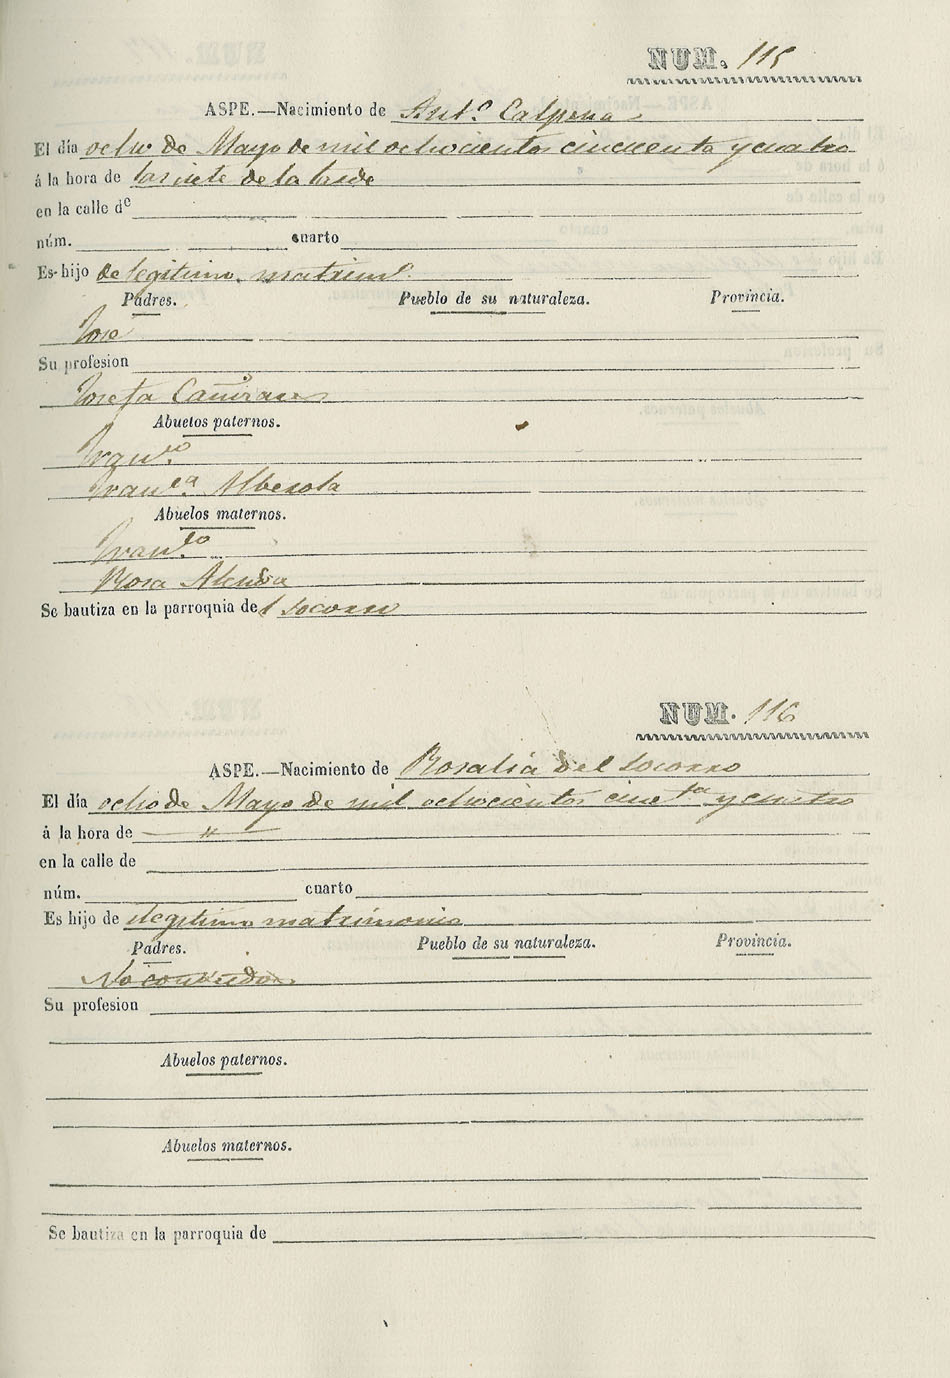 NUM. 115
ASPE.—Nacimiento de Antº Calpena
El día ocho de Mayo de mil ochocientos cincuenta y cuatro
á la hora de las siete de la tarde
en la calle de
núm. cuarto
Es hijo de legitimo matrimº
Padres. Pueblo de su naturaleza. Provincia.
Jose
Su profesion
Josefa Cañizares
Abuelos paternos.
Franᶜᵒ
Franᶜᵃ Alberola
Abuelos maternos.
Franᶜᵒ
Rosa
Se bautiza en la parroquia del Socorro
NUM. 116
ASPE.—Nacimiento de Rosalia del Socorro
El día ocho de Mayo de mil ochocientos cincᵗᵃ y cuatro
á la hora de "
en la calle de
núm. cuarto
Es hijo de ilegitimo matrimonio
Padres. Pueblo de su naturaleza. Provincia.
No conocidos
Su profesion
Abuelos paternos.
Abuelos maternos.
Se bautiza en la parroquia de